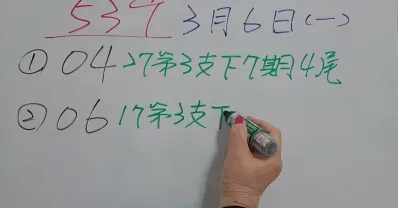 539 3月6日(一)
① 04 27第3支下7期4尾
② 06 17第3支下